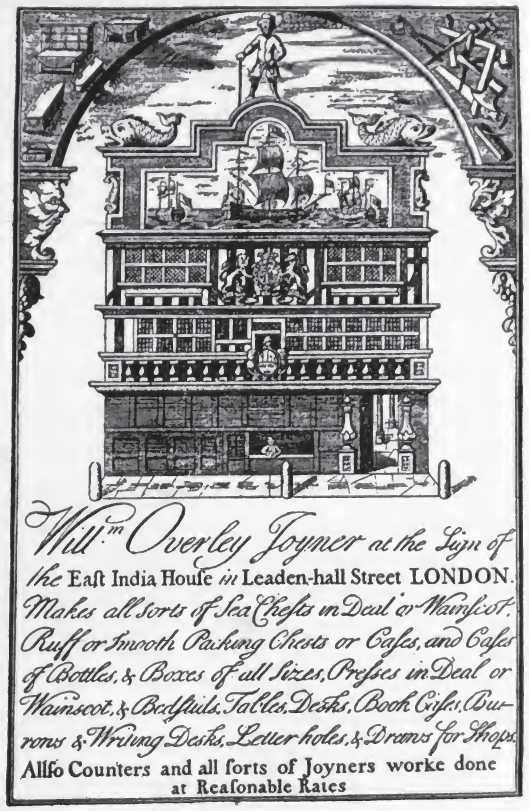 Will.m Overley Joyner at the Sign of
the Eaſt India Houſe in Leaden-hall Street LONDON.
Makes all sorts of Sea Cheſts in Deal or Wainscot,
Ruff or smooth Packing Chests or Caſes, and Caſes
of Bottles, & Boxes of all Sizes, Preſses in Deal or
Wainscot, & Bedſtids, Tables, Desks, Book Caſes, Bur-
rons & Writing Desks, Letter holes, & Draws for Shops.
Allſo Counters and all ſorts of Joyners worke done
at Reaſonable Rates